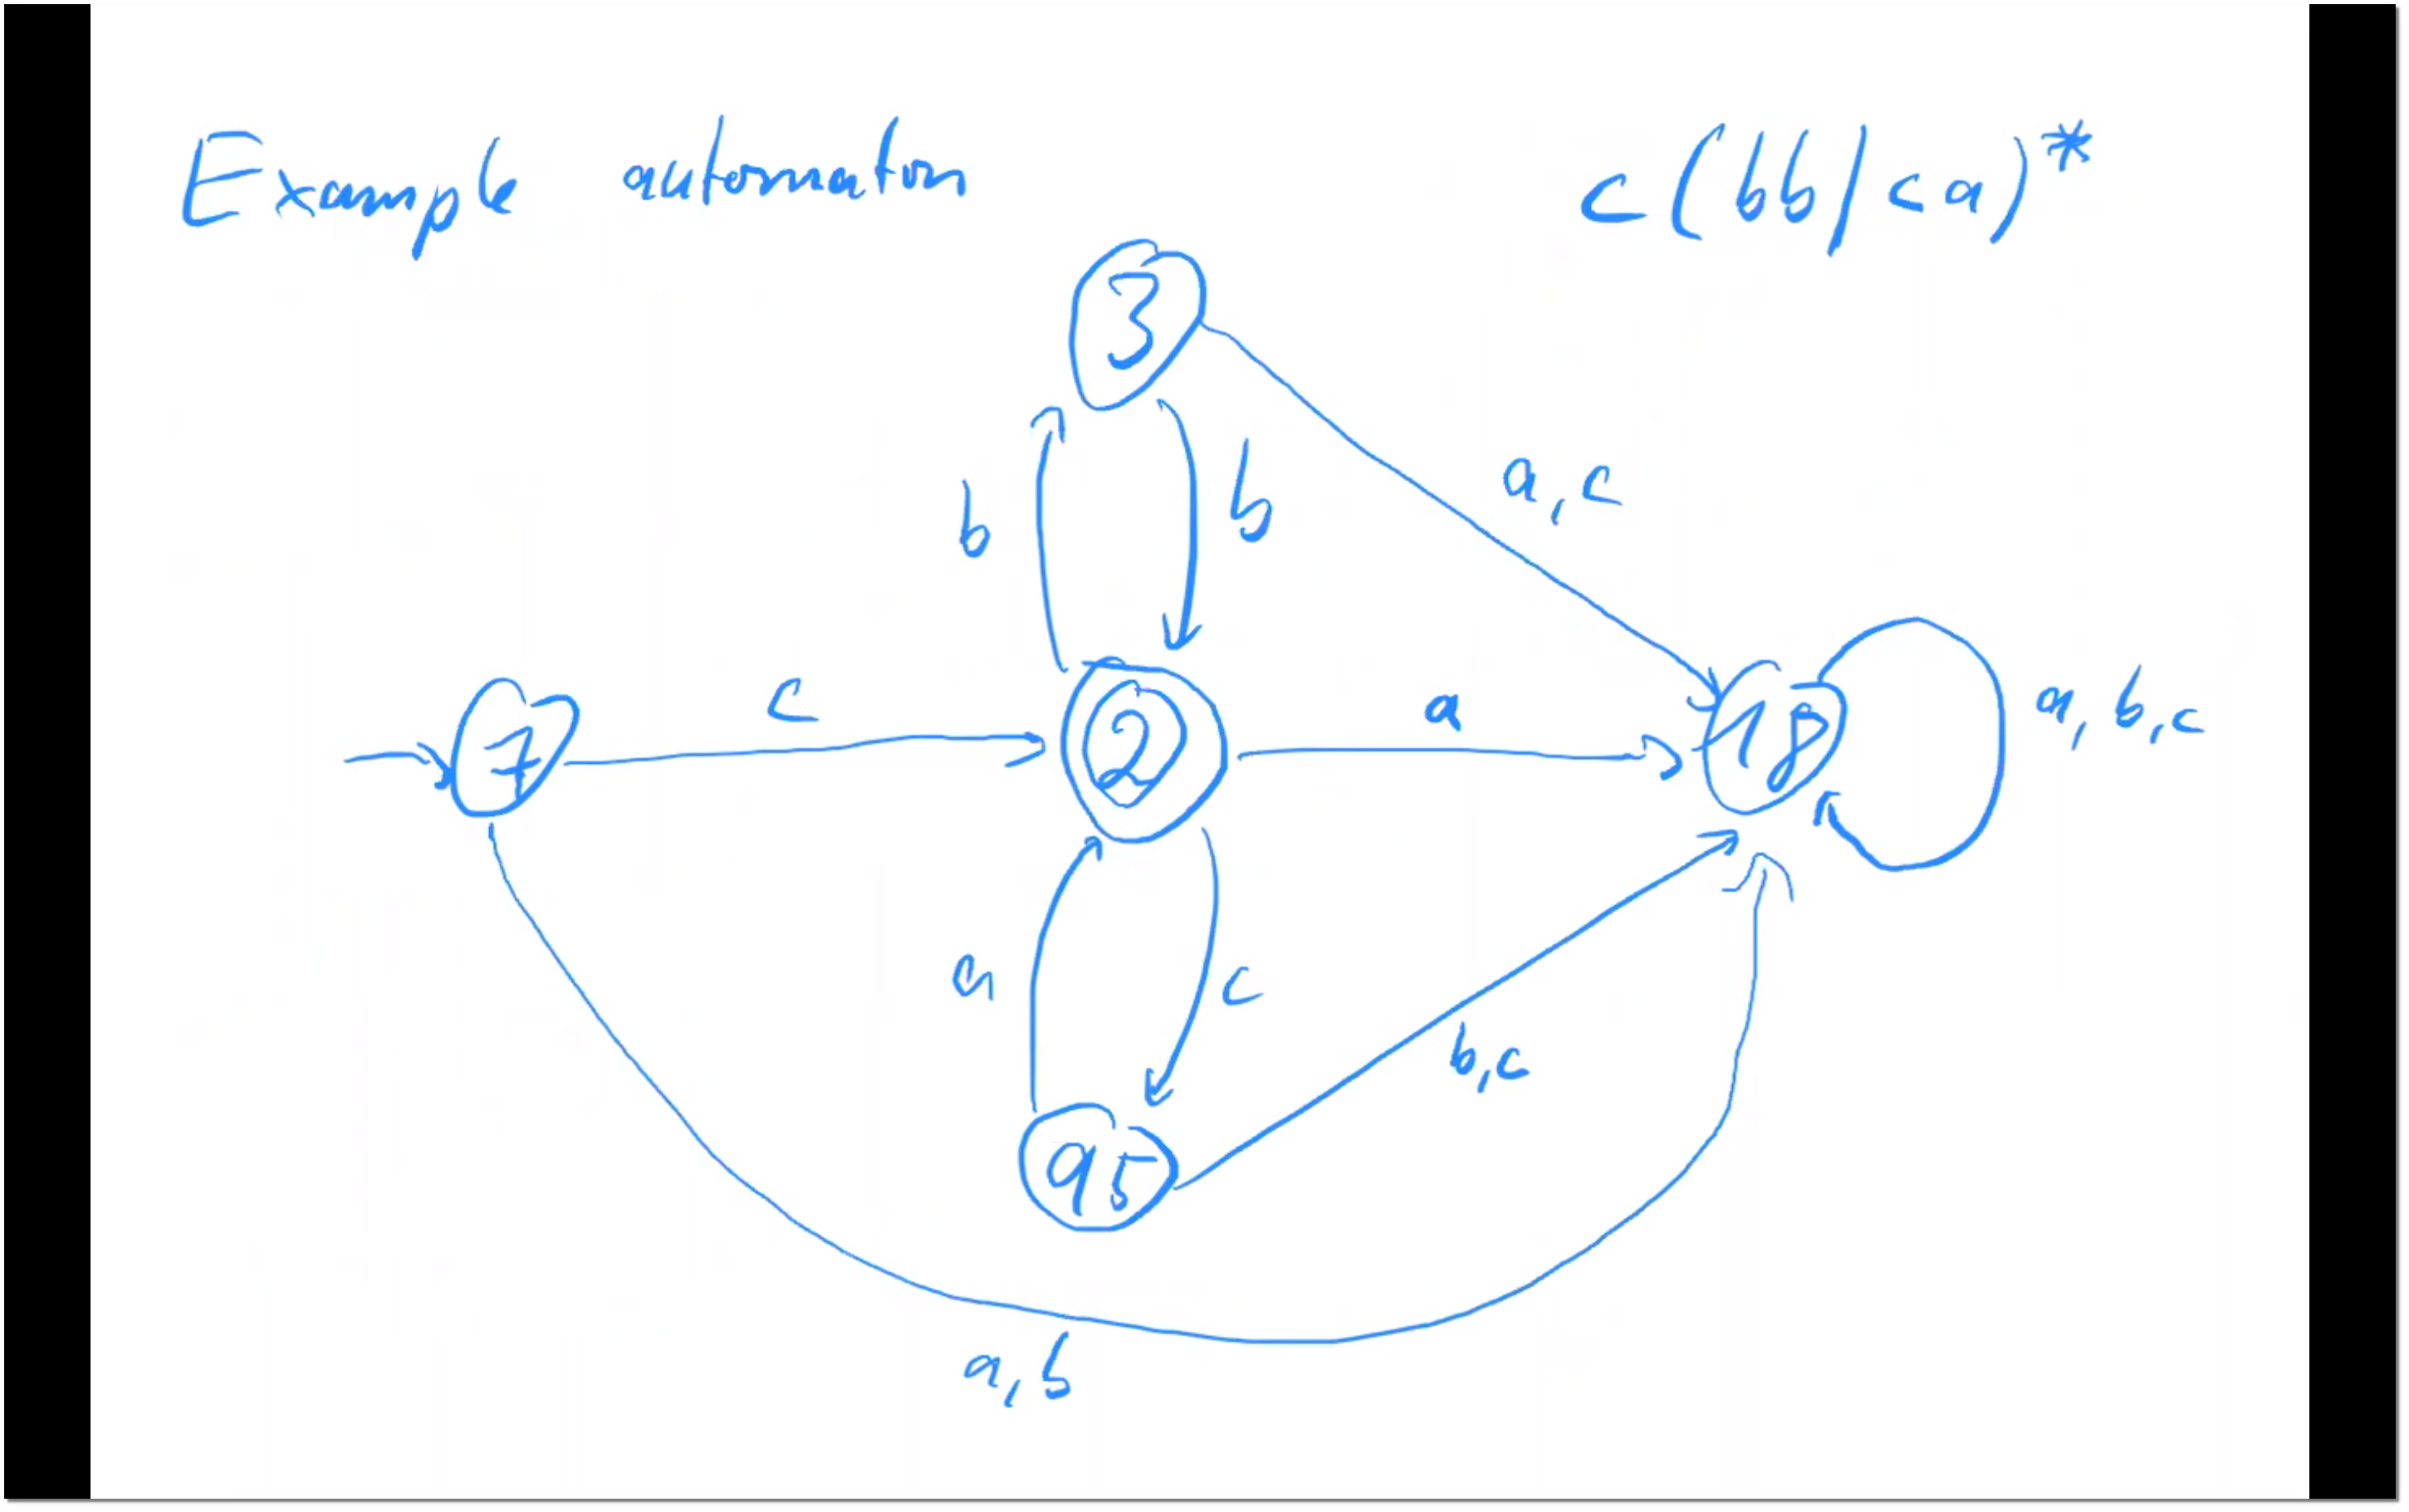 Example automaton
c(bb|ca)*
3
a,c
b
b
7
c
2
a
18
a,b,c
a
c
b,c
95
a,b